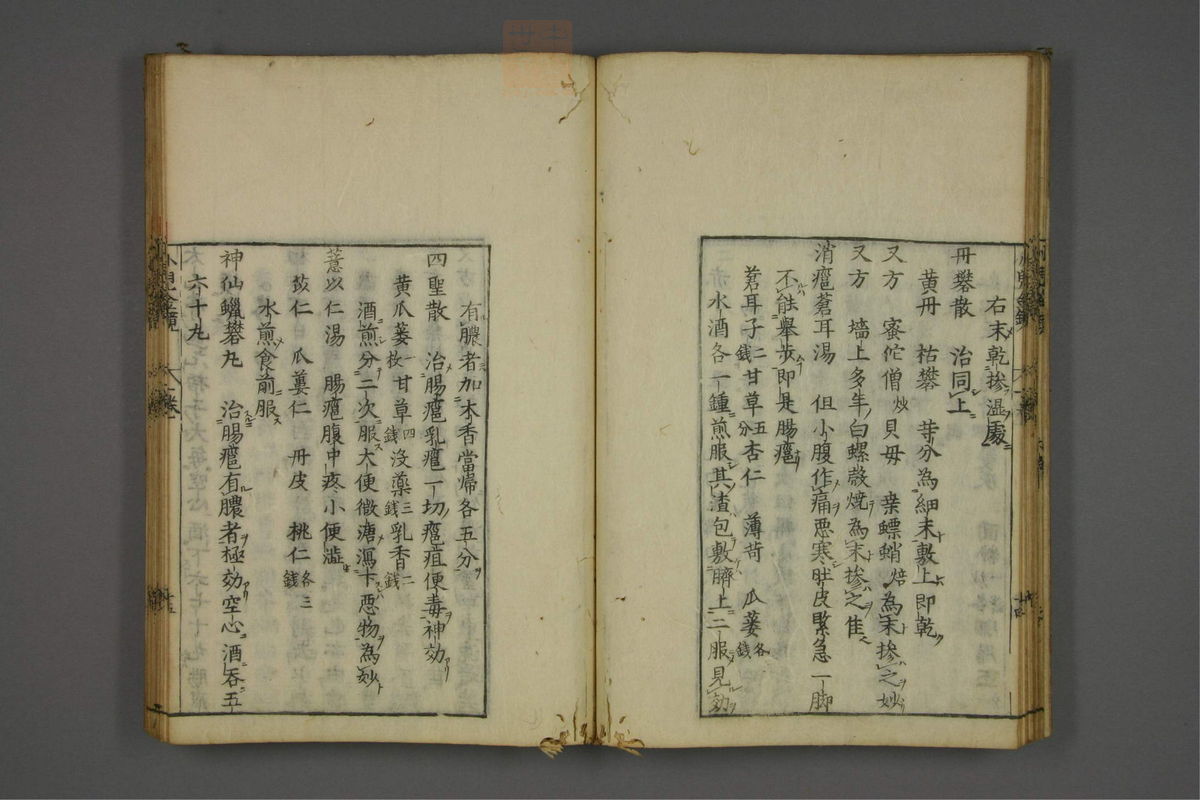 右末乾摻湿處
丹礬散　治同上
黄丹　枯礬　等分為細末敷上即乾
又方　蜜佗僧炒貝母　桒螵蛸焙為末摻之妙
又方　墻上多年白螺殼焼為末摻之佳
消癰蒼耳湯　但小腹作痛悪寒肚皮緊急一脚
不能舉歩即是腸癰
蒼耳子二錢甘草五分杏仁　薄苛　瓜蔞各錢
水酒各一鍾煎服其渣包敷臍上二服見効
有膿者加木香當帰各五分
四聖散　治腸癰乳癰一切癰疽便毒神効
黄瓜蔞一枚甘草四錢没藥三錢乳香二錢
酒煎分二次服大便微溏瀉下悪物為妙
薏苡仁湯　腸癰腹中疼小便澁
苡仁　瓜蔞仁　丹皮　桃仁各三錢
水煎食前服
神仙蠟礬丸　治腸癰有膿者極効空心酒吞五
六十丸